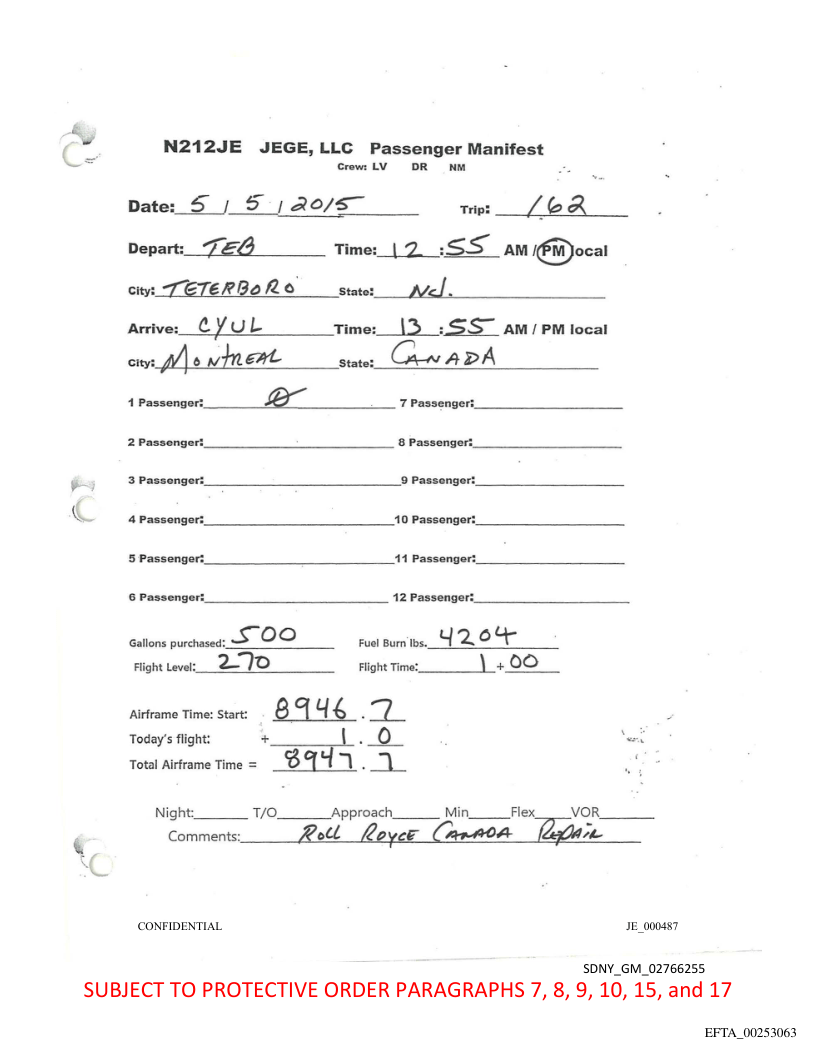 N212JE JEGE, LLC Passenger Manifest
Crew: LV DR NM
Date: 5 / 5 / 2015 Trip: 162
Depart: TEB Time: 12 :55 AM / PM local
City: TETERBORO State: NJ.
Arrive: CYUL Time: 13 :55 AM / PM local
City: MONTREAL State: CANADA
1 Passenger: 7 Passenger:
2 Passenger: 8 Passenger:
3 Passenger: 9 Passenger:
4 Passenger: 10 Passenger:
5 Passenger: 11 Passenger:
6 Passenger: 12 Passenger:
Gallons purchased: 500 Fuel Burn lbs. 4204
Flight Level: 270 Flight Time: 1 + 00
Airframe Time: Start: 8946 . 7
Today's flight: + 1 . 0
Total Airframe Time = 8947 . 7
Night: T/O Approach Min Flex VOR
Comments: ROLL ROYCE CANADA REPAIR
CONFIDENTIAL JE_000487
SDNY_GM_02766255
SUBJECT TO PROTECTIVE ORDER PARAGRAPHS 7, 8, 9, 10, 15, and 17
EFTA_00253063